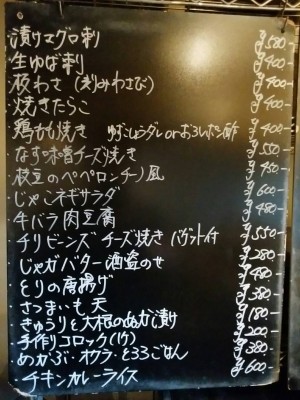 ・漬けマグロ刺 ¥580-
・生ゆば刺 ¥400-
・板わさ（刻みわさび） ¥400-
・焼きたらこ ¥400-
・鶏もも焼き ゆずこしょうダレorおろしポン酢 ¥400-
・なす味噌チーズ焼き ¥550-
・枝豆のペペロンチーノ風 ¥450-
・じゃこネギサラダ ¥600-
・牛バラ肉豆腐 ¥480-
・チリビーンズ チーズ焼き バゲット付 ¥550-
・じゃがバター酒盗のせ ¥280-
・とりの唐揚げ ¥480-
・さつまいも天 ¥380-
・きゅうりと大根のぬか漬け ¥180-
・手作りコロッケ(1ケ) ¥200-
・めかぶ・オクラ・とろろごはん ¥380-
・チキンカレーライス ¥600-